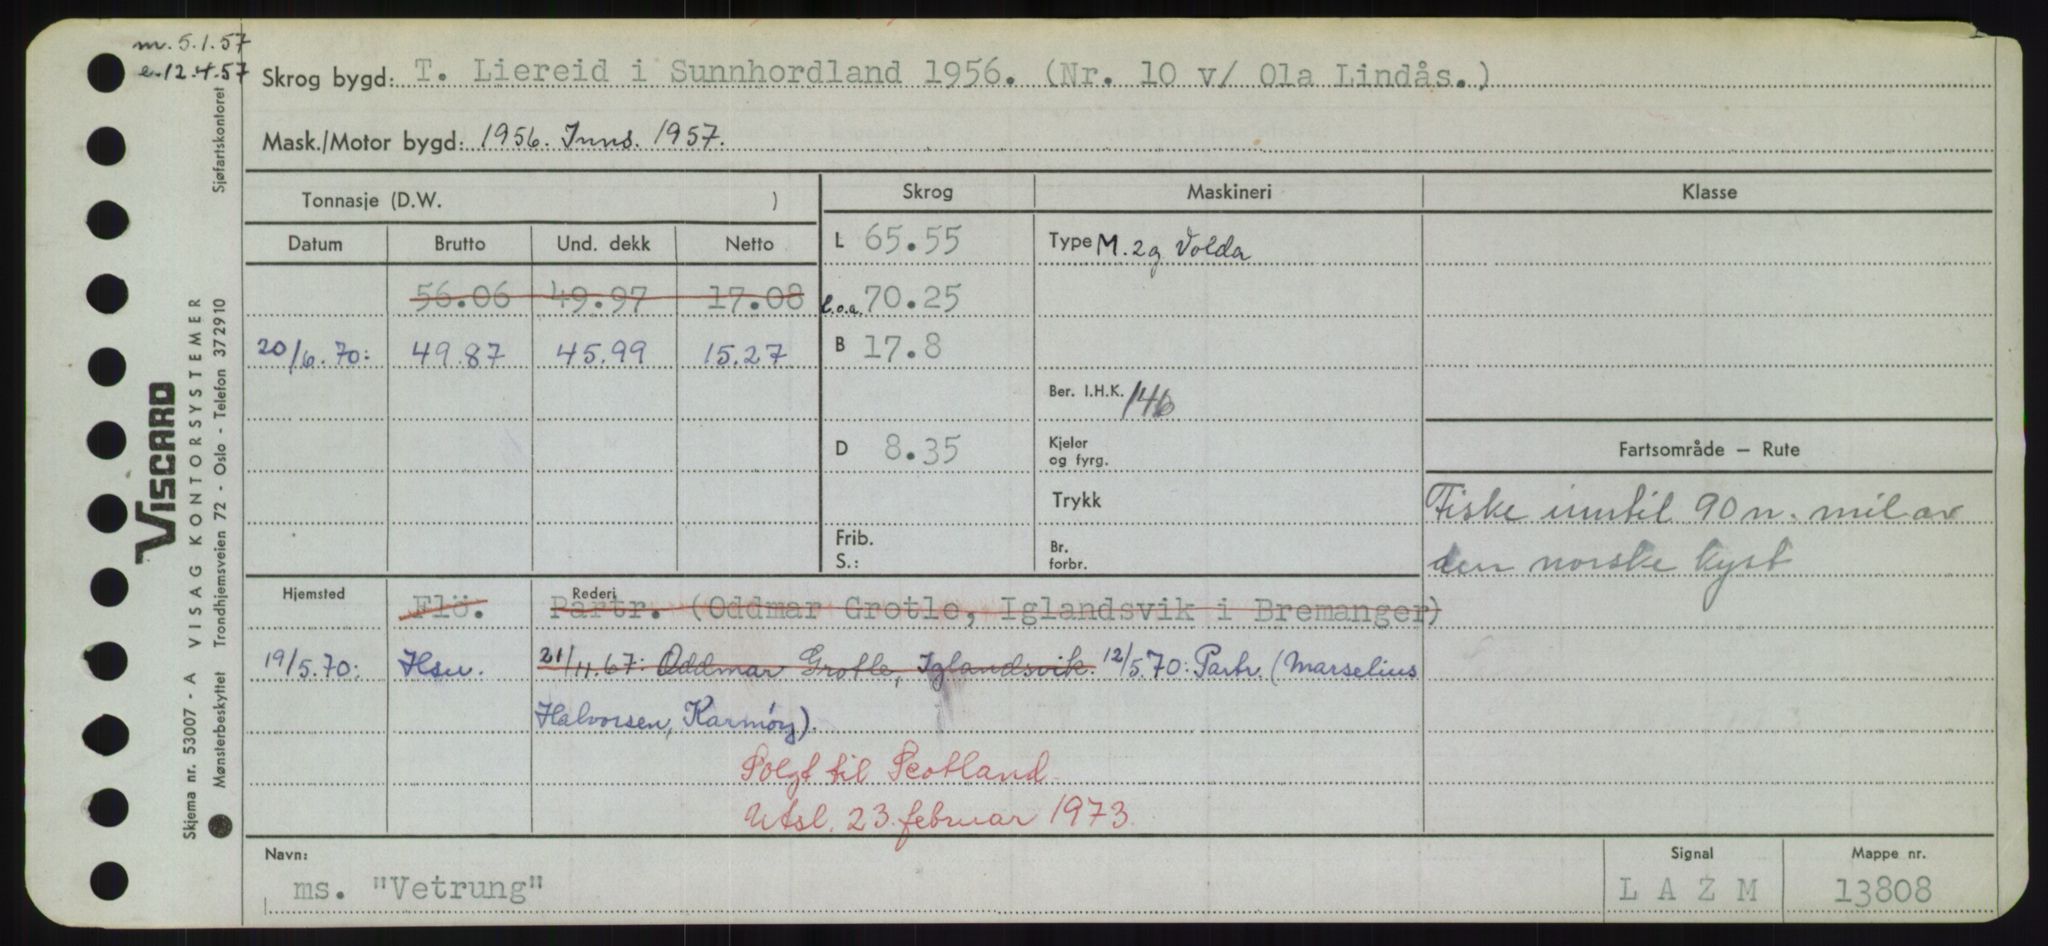 m. 5.1.57
e. 12.4.57
Skrog bygd: T. Liereid i Sunnhordland 1956. (Nr. 10 v/ Ola Lindås.)
Mask./Motor bygd: 1956. Inns. 1957.
Tonnasje (D.W. )
Skrog
Maskineri
Klasse
Datum Brutto Und. dekk Netto
L 65.55
Type M. 2g Volda
56.06 49.97 17.08
l.o.a. 70.25
20/6.70: 49.87 45.99 15.27
B 17.8
Ber. I.H.K. 146
D 8.35
Kjeler
og fyrg.
Fartsområde — Rute
Trykk
Fiske inntil 90 n. mil av
Frib.
S.:
Br.
forbr.
den norske kyst
Hjemsted
Rederi
Flö. Partr. (Oddmar Grotle, Iglandsvik i Bremanger)
19/5.70: Hsu. 21/11.67: Oddmar Grotle, Iglandsvik. 12/5.70: Partr. (Marselius
Halvorsen, Karmöy).
Solgt til Scotland
Utsl. 23. februar 1973.
Navn:
ms. "Vetrung"
Signal
L A Z M
Mappe nr.
13808
Sjøfartskontoret
VISCARD
VISAG KONTORSYSTEMER
Trondhjemsveien 72 - Oslo - Telefon 372910
Skjema nr. 53007 - A
Mønsterbeskyttet